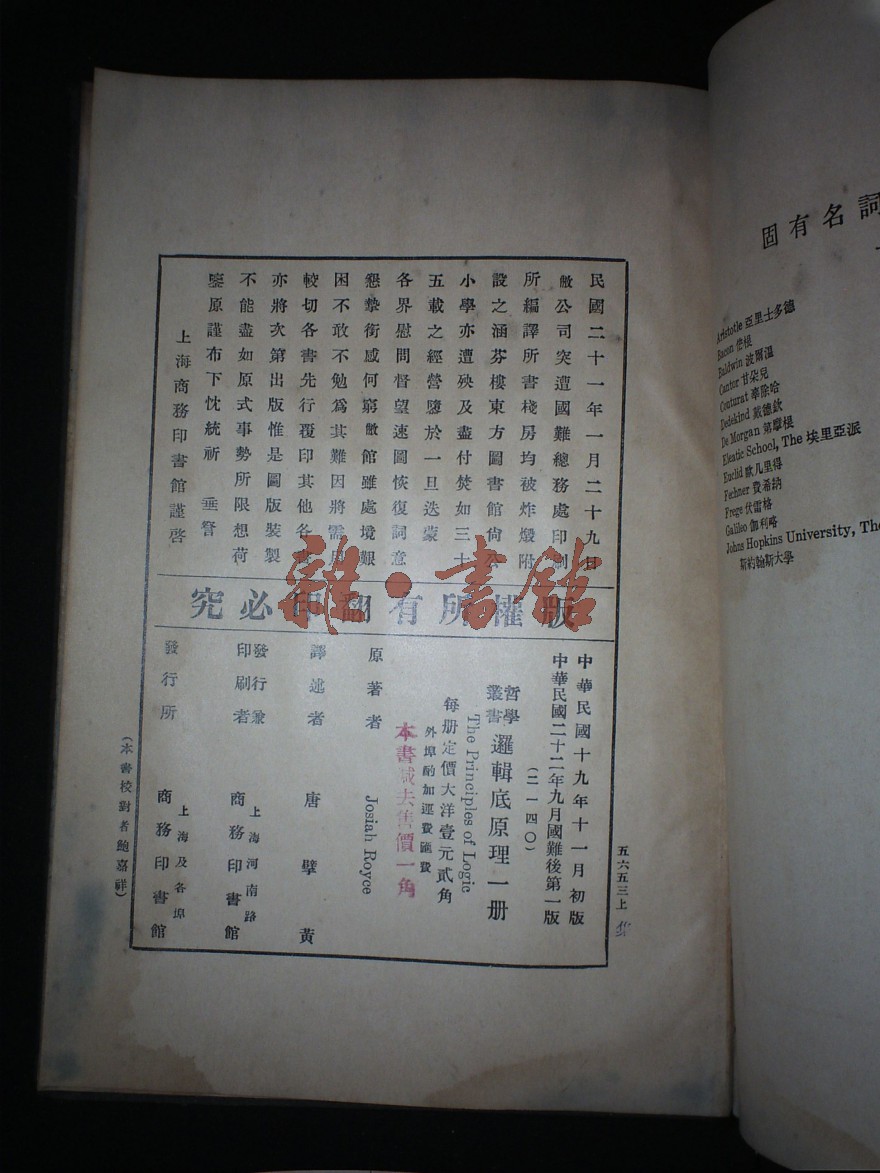 民國二十一年一月二十九日
敝公司突遭國難總務處印刷
所編譯所書棧房均被炸燬附
設之涵芬樓東方圖書館尙公
小學亦遭殃及盡付焚如三十
五載之經營隳於一旦迭蒙
各界慰問督望速圖恢復詞意
懇摯銜感何窮敝館雖處境艱
困不敢不勉爲其難因將需用
較切各書先行覆印其他各書
亦將次第出版惟是圖版裝製
不能盡如原式事勢所限想荷
鑒原謹布下忱統祈 垂詧
上海商務印書館謹啓
版權所有翻印必究
雜·書館
五六五三上
中華民國十九年十一月初版
中華民國二十二年九月國難後第一版
(二一四〇)
哲學叢書 邏輯底原理一册
The Principles of Logic
每册定價大洋壹元貳角
外埠酌加運費匯費
本書減去售價一角
原著者 Josiah Royce
譯述者 唐擘黃
發行兼印刷者 上海河南路 商務印書館
發行所 上海及各埠 商務印書館
(本書校對者鮑嘉祥)
固有名詞
Aristotle 亞里士多德
Bacon 倍根
Baldwin 波爾溫
Cantor 甘朵兒
Couturat 辜除哈
Dedekind 戴德欽
De Morgan 第摩根
Eleatic School, The 埃里亞派
Euclid 歐几里得
Fechner 費希納
Frege 伏雷格
Galileo 伽利略
Johns Hopkins University, The
斯約翰斯大學